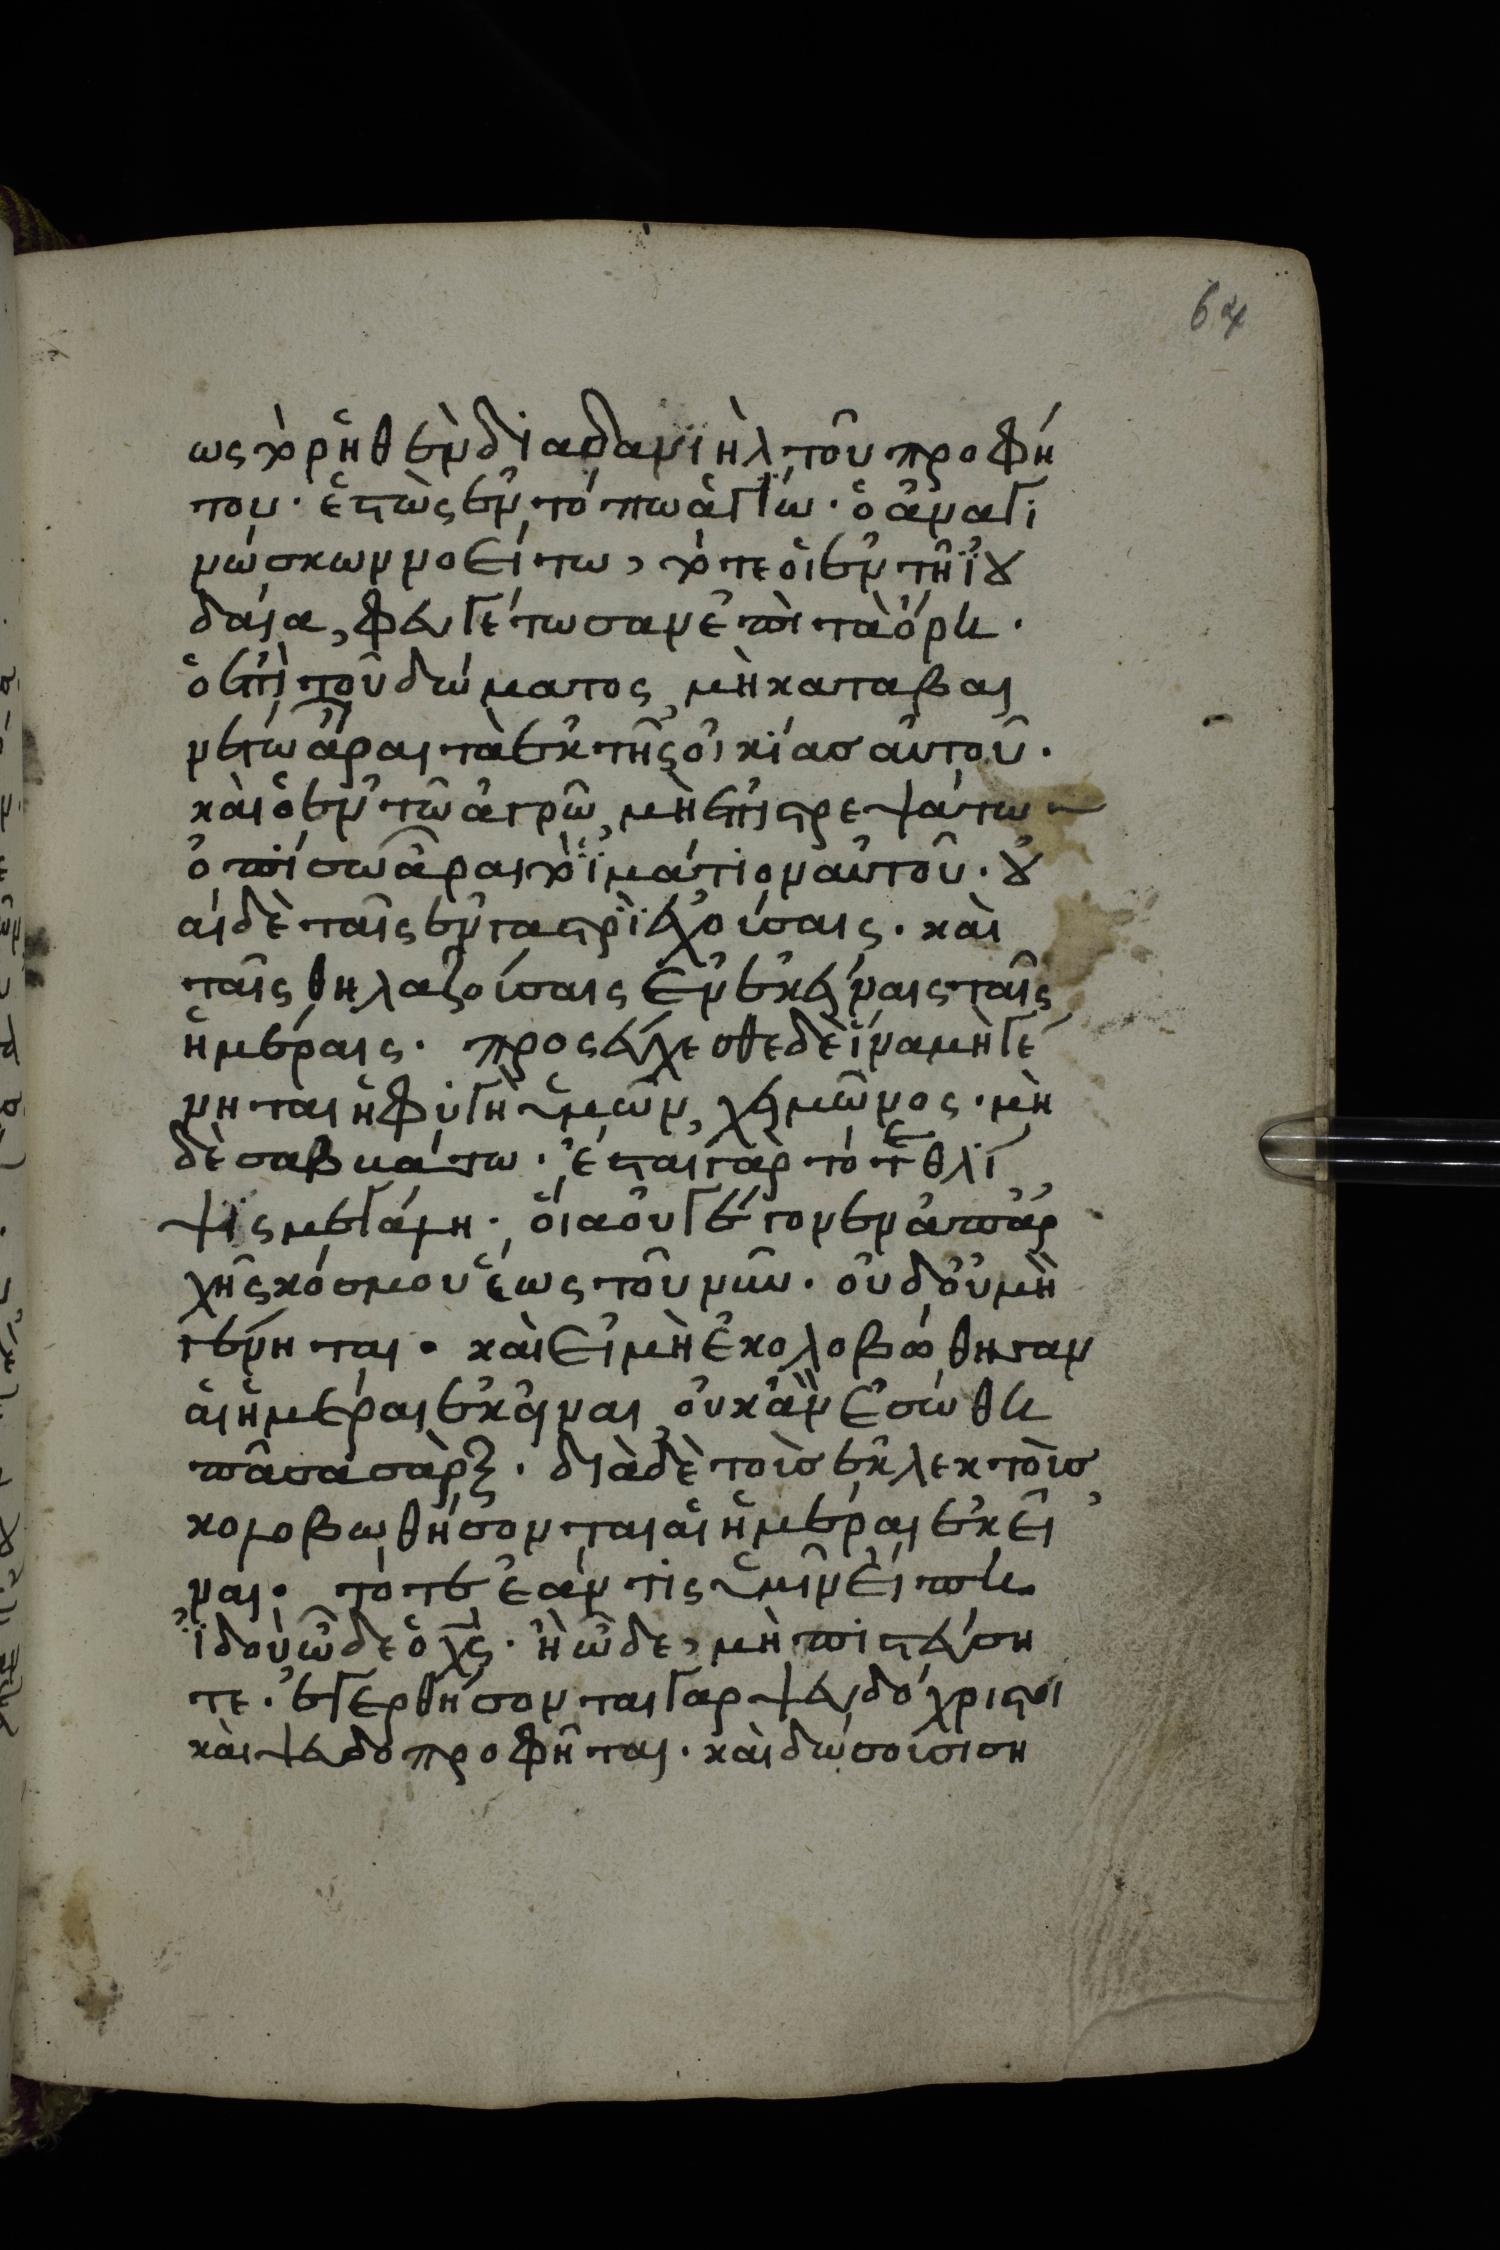 64
ως τὸ ῥηθὲν διὰ δανϊὴλ τοῦ προφή
του· ἑστὼς ἐν τόπω ἁγίω· ὁ ἀναγι
νώσκων νοείτω, τότε οἱ ἐν τῆ ἰου
δαία, φευγέτωσαν ἐπὶ τὰ ὄρη·
ὁ ἐπὶ τοῦ δώματος, μὴ καταβαι
νέτω ἆραι τὰ ἐκ τῆς οἰκίασ αὐτοῦ·
καὶ ὁ ἐν τῶ ἀγρῶ, μὴ ἐπιστρεψάτω
ὀπίσω ἆραι τὸ ἱμάτιον αὐτοῦ· οὐ
αὶ δὲ ταῖς ἐν γαστρὶ ἐχούσαις· καὶ
ταῖς θηλαζούσαις ἐν ἐκείναις ταῖς
ἡμέραις· προσεύχεσθε δὲ ἵνα μὴ γέ
νηται ἡ φυγὴ ὑμῶν, χειμῶνος· μὴ
δὲ σαββάτω· ἔσται γὰρ τότε θλί
ψις μεγάλη· οἵα οὐ γέγονεν ἀπαρ
χῆς κόσμου ἕως τοῦ νῦν· οὐδοὐ μὴ
γένηται· καὶ εἰ μὴ ἐκολοβώθησαν
αἱ ἡμέραι ἐκείναι, οὐκ ἂν ἐσώθη
πᾶσα σὰρξ· διὰ δὲ τοὺσ ἐκλεκτοὺσ
κολοβωθήσονται αἱ ἡμέραι ἐκεῖ
ναι· τότε ἐάν τις ὑμῖν εἴπη·
ἰδοὺ ὧδε ὁ χς· ἢ ὧδε, μὴ πιστεύση
τε· ἐγερθήσονται γαρ ψευδόχριστοι
καὶ ψευδοπροφῆται· καὶ δώσουσι ση